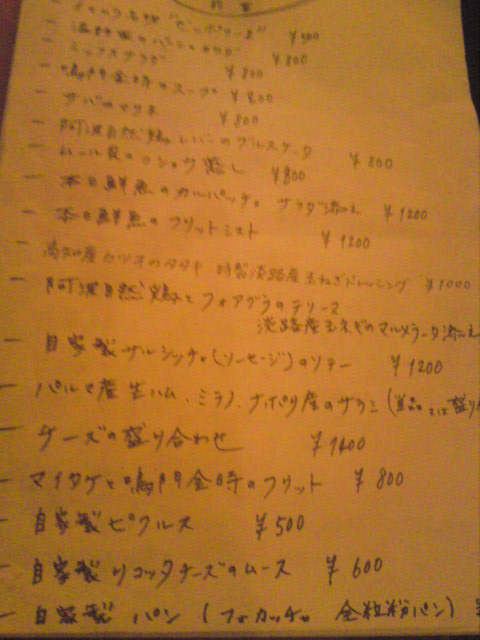 前菜
"ピッポリーネ" ¥500
¥800
ミックスサラダ ¥800
鳴門金時のスープ ¥800
サバのマリネ ¥800
阿波自然鶏レバーのブルスケッタ ¥800
ムール貝のコショウ蒸し ¥800
本日鮮魚のカルパッチョ サラダ添え ¥1200
本日鮮魚のフリットミスト ¥1200
高知産カツオのタタキ 特製淡路産玉ねぎドレッシング ¥1000
阿波自然鶏とフォアグラのテリーヌ
淡路産玉ネギのマルメラータ添え
自家製サルシッチャ(ソーセージ)のソテー ¥1200
パルマ産生ハム、ミラノ、ナポリ産のサラミ(単品又は盛り
チーズの盛り合わせ ¥1400
マイタケと鳴門金時のフリット ¥800
自家製ピクルス ¥500
自家製リコッタチーズのムース ¥600
自家製パン(フォカッチャ 全粒粉パン)